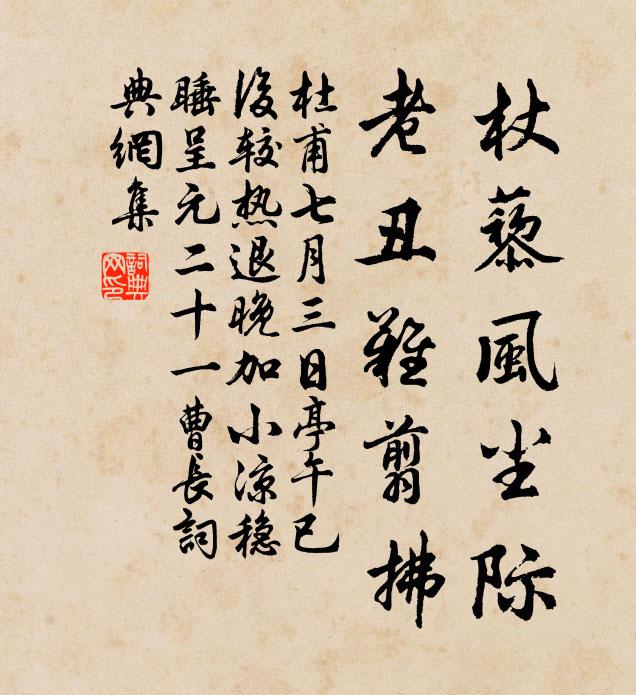 杖藜風尘际
老丑难翦拂
杜甫七月三日亭午已
後较热退晚加小凉稳
睡呈元二十一曹長詞
典網集
詞典
网印